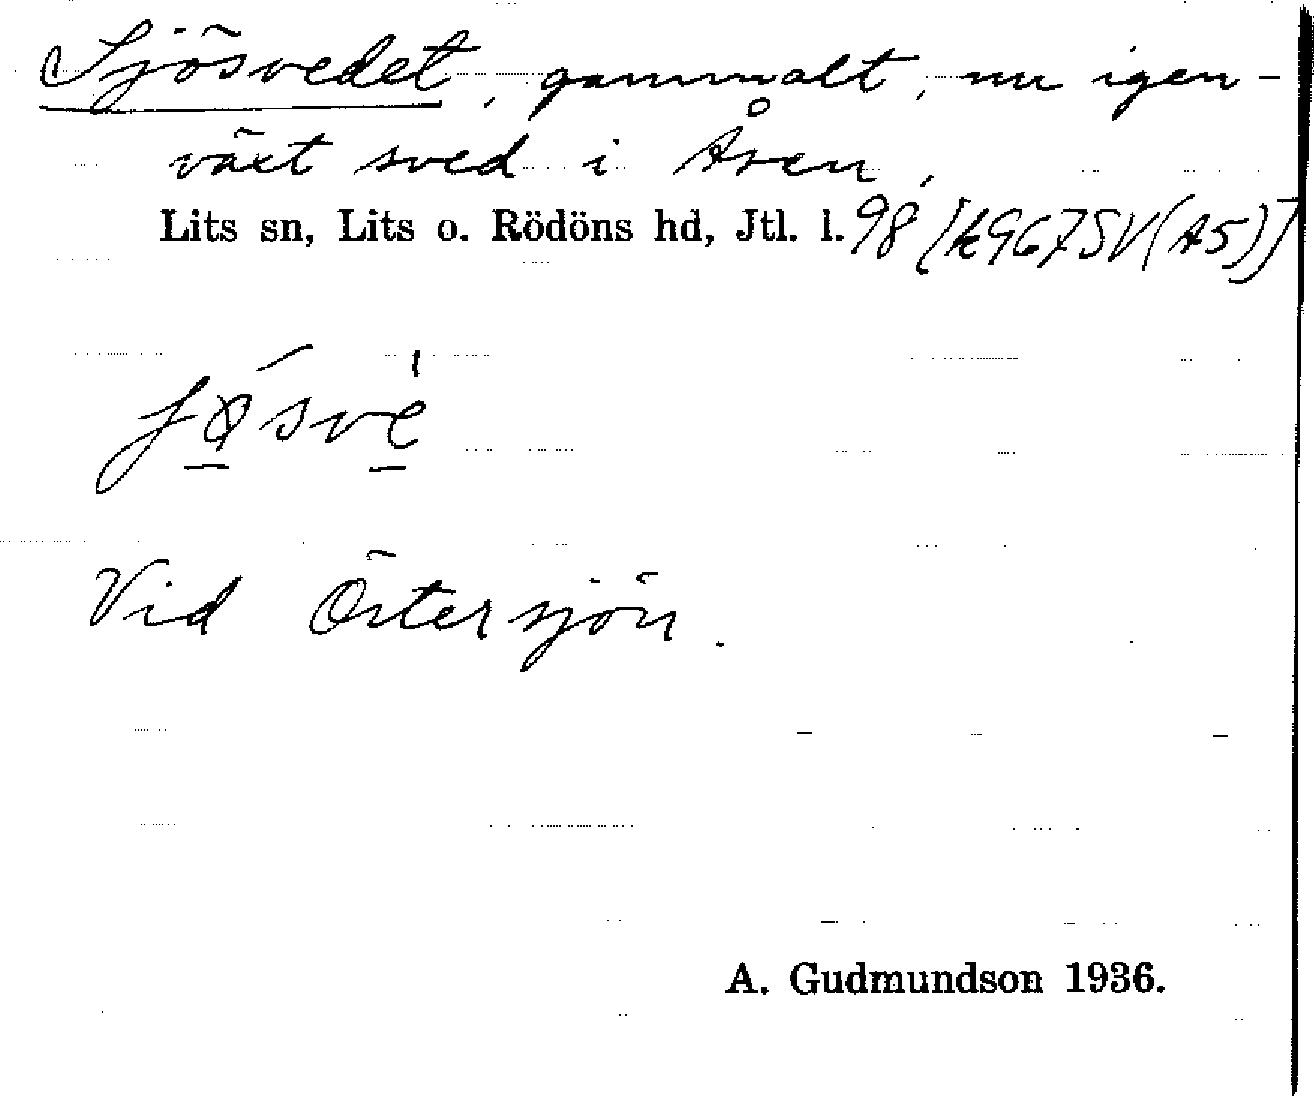 Sjösvedet, gammalt, nu igen-
växt sved i Åsen,
Lits sn, Lits o. Rödöns hd, Jtl. l. 98 [k967SV(A5)]
Vid Östersjön.
A. Gudmundson 1936.